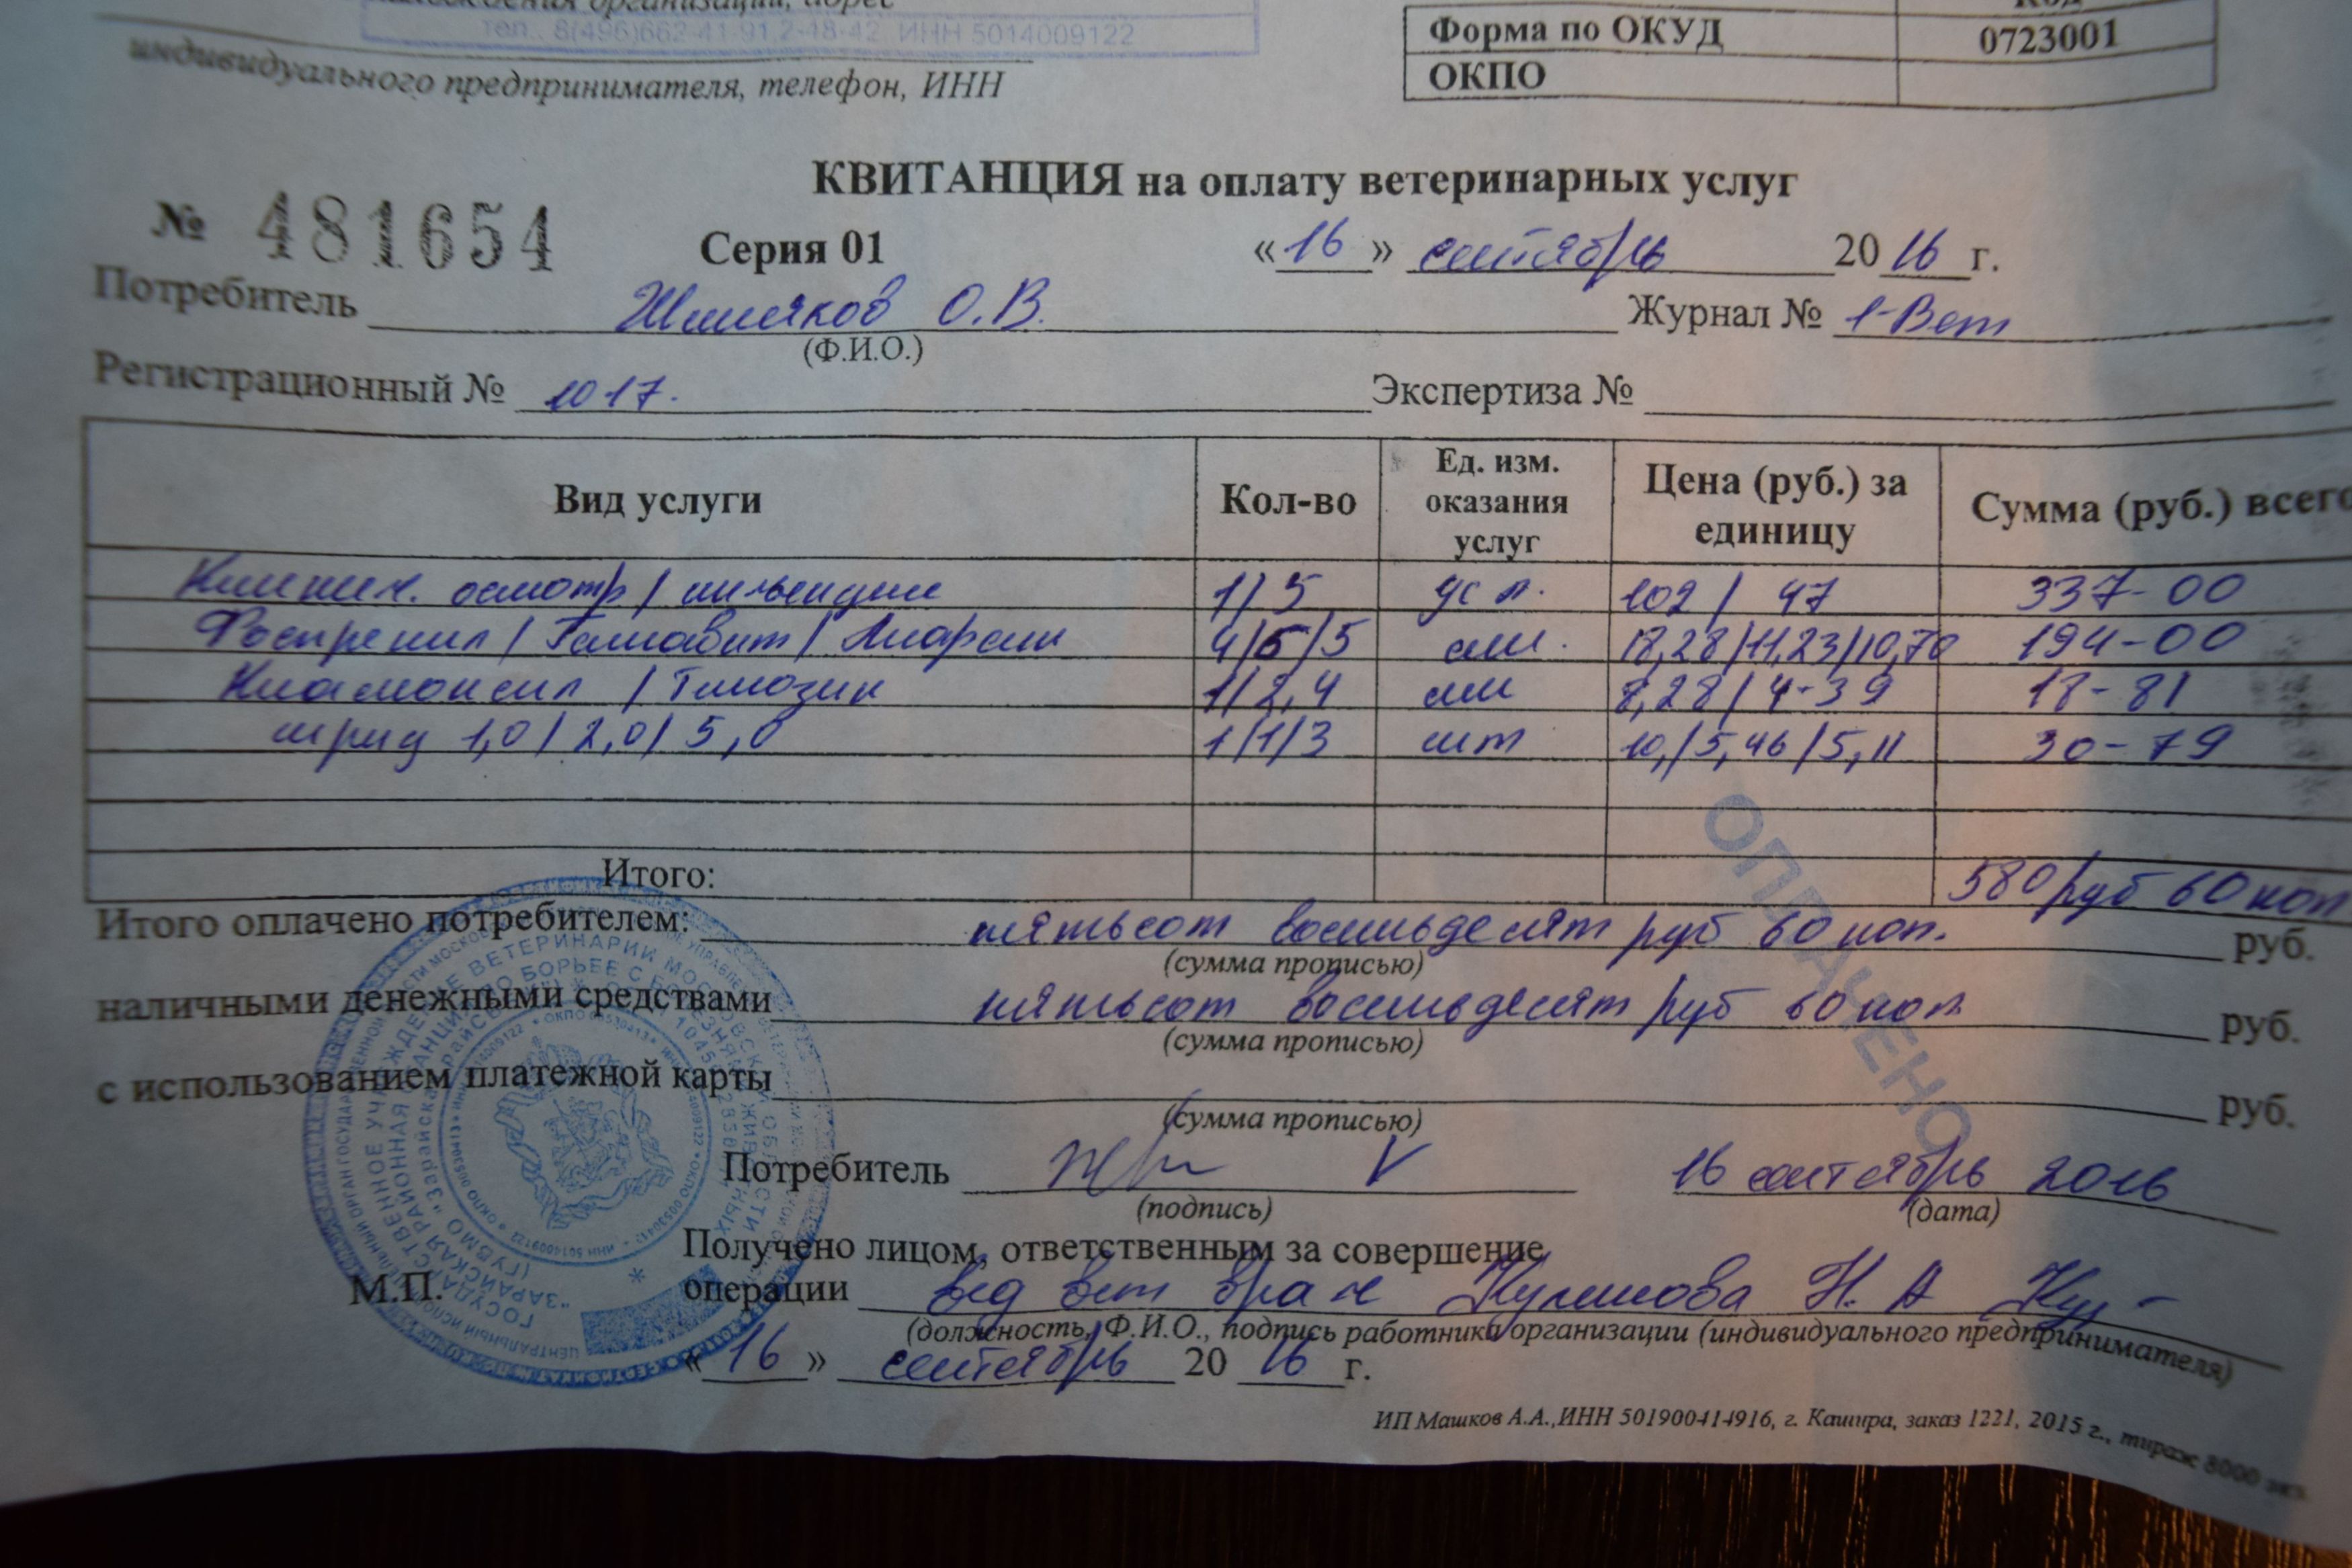 организации, адрес
тел.. 8(496)662-41-91,2-48-42, ИНН 5014009122
индивидуального предпринимателя, телефон, ИНН
Код
Форма по ОКУД 0723001
ОКПО
КВИТАНЦИЯ на оплату ветеринарных услуг
№ 481654 Серия 01 «16» сентябрь 2016 г.
Потребитель О.В. Журнал № 1-Вет
(Ф.И.О.)
Регистрационный № 1017. Экспертиза №
Вид услуги Кол-во Ед. изм. оказания услуг Цена (руб.) за единицу Сумма (руб.) всего
Клинич. осмотр / инъекции 1/5 усл. 102 / 47 337-00
Фоспренил / Гамавит / Лиарсин 4/5/5 мл. 18,28/11,23/10,70 194-00
Кламоксил / Тилозин 1/2,4 мл 8,28 / 4-39 18-81
шприц 1,0 / 2,0 / 5,0 1/1/3 шт 10,/5,46/5,11 30-79
Итого: 580 руб 60 коп
Итого оплачено потребителем: пятьсот восемьдесят руб 60 коп. руб.
(сумма прописью)
наличными денежными средствами пятьсот восемьдесят руб 60 коп руб.
(сумма прописью)
с использованием платежной карты руб.
(сумма прописью)
ОПЛАЧЕНО
Потребитель V 16 сентябрь 2016
(подпись) (дата)
Получено лицом, ответственным за совершение
М.П. операции вед вет врач Н. А
(должность, Ф.И.О., подпись работника организации (индивидуального предпринимателя)
«16» сентябрь 2016 г.
ИП Машков А.А.,ИНН 501900414916, г. Кашира, заказ 1221, 2015 г., тираж 8000 экз.